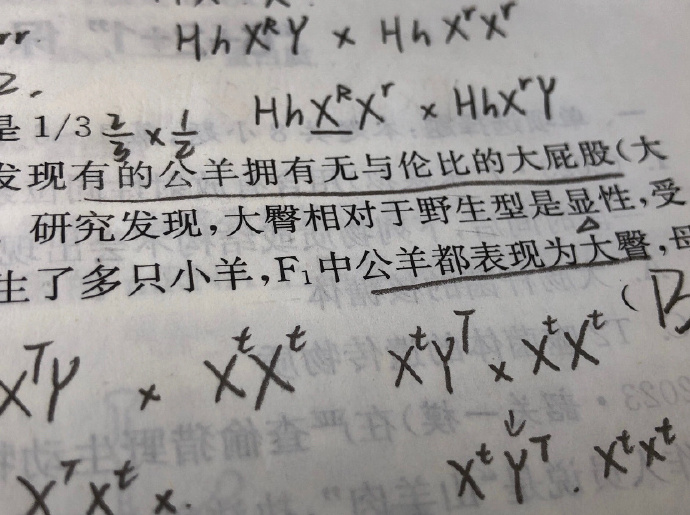 rr.
Hh XᴿY × Hh XʳXʳ
2.
Hh XᴿXʳ × HhXʳY
是 1/3 2/3 × 1/2
发现有的公羊拥有无与伦比的大屁股(大
研究发现,大臀相对于野生型是显性,受
生了多只小羊,F₁中公羊都表现为大臀,母
XᵀY × XᵗXᵗ XᵗYᵀ × XᵗXᵗ (B
↓
XᵀXᵗ ×. XᵗYᵀ. XᵗXᵗ